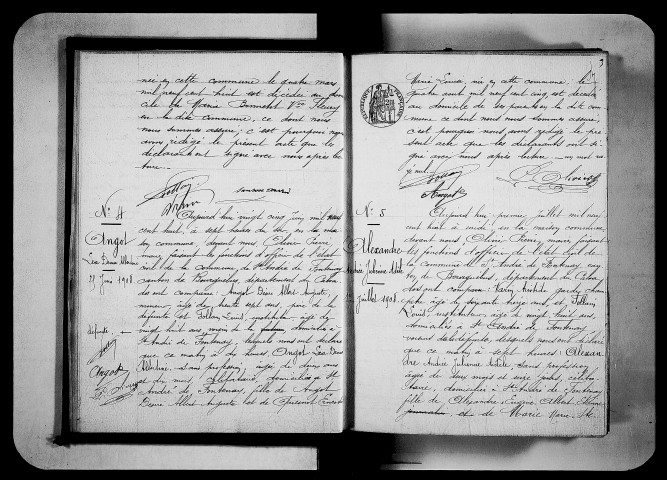 née en cette commune le quatre mars
mil neuf cent huit est décédée au domi
cile de Marie Bonnechit Vve Fleury
en la dite commune, ce dont nous
nous sommes assuré, c'est pourquoi nous
avons rédigé le présent acte que les
déclarants ont signé avec nous après lec
ture.
N° 4
Angot
Léa Denise Albertine
25 Juin 1908
défunte
Aujourd'hui vingt cinq Juin mil neuf
cent huit, à sept heures du soir, en la mai
son commune, devant nous Olivier Pierre,
maire faisant les fonctions d'officier de l'état
civil de la commune de St André de Fontenay
canton de Bourguébus, département du Calva
dos ont comparu: Angot Désiré Albert Auguste,
âgé de trente sept ans, père de la
défunte et Follain Louis, instituteur âgé de
vingt huit ans, domiciliés à
St André de Fontenay, lesquels nous ont déclaré
que ce matin à dix heures, Angot Léa Denise
Albertine sans profession, âgée de deux ans
et dix mois, célibataire, domiciliée à St
André de Fontenay, fille de Angot
Désiré Albert Auguste et de
Angot
3
Marie Louise, née en cette commune, le
quatre août mil neuf cent cinq, est décédée
au domicile de ses parents en la dite com
mune ce dont nous nous sommes assuré,
c'est pourquoi nous avons rédigé le pré
sent acte que les déclarants ont si
gné avec nous après lecture. un mot ra
yé nul.
RÉPUBLIQUE FRANÇAISE
Angot
P. Olivier
N° 5
Alexandre
Andrée Julienne Arlette
1er juillet 1908
Aujourd'hui premier Juillet mil neuf
cent huit à midi, en la maison commune,
devant nous Olivier Pierre, maire faisant
les fonctions d'officier de l'état civil de
la commune de St André de Fontenay, can
ton de Bourguébus, département du Calva
dos ont comparu Aristide garde cham
pêtre âgé de soixante treize ans et Follain
Louis, instituteur, âgé de vingt huit ans,
domiciliés à St André de Fontenay
lesquels nous ont déclaré
que ce matin à sept heures, Alexan
dre Andrée Julienne Arlette, sans profession,
âgée de deux mois et jours, céliba
taire, domiciliée à St André de Fontenay
fille de Alexandre Eugène Albert
et de Marie